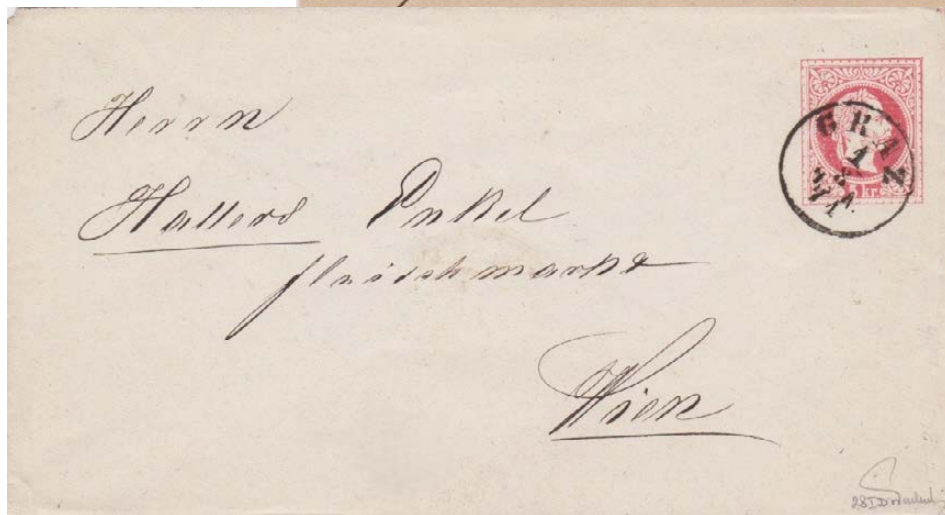 Herrn
Hallers Enkel
fleischmarkt
Wien
GRAZ
1
5 Kr.
28ID